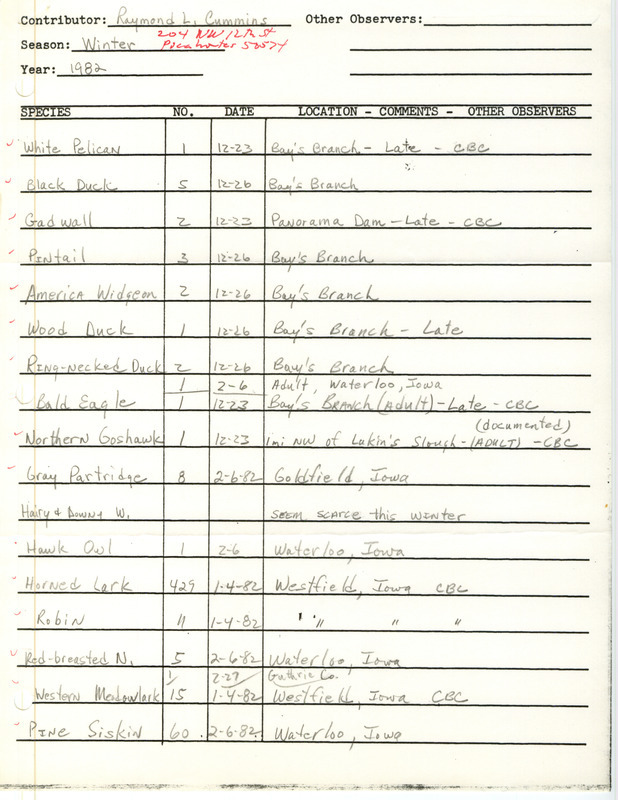 Contributor: Raymond L. Cummins Other Observers:
204 NW 12th St
Season: Winter Pocahontas 50574
Year: 1982
SPECIES NO. DATE LOCATION - COMMENTS - OTHER OBSERVERS
White Pelican 1 12-23 Bay's Branch - Late - CBC
Black Duck 5 12-26 Bay's Branch
Gadwall 2 12-23 Panorama Dam - Late - CBC
Pintail 3 12-26 Bay's Branch
America Widgeon 2 12-26 Bay's Branch
Wood Duck 1 12-26 Bay's Branch - Late
Ring-necked Duck 2 12-26 Bay's Branch
1 2-6 Adult, Waterloo, Iowa
Bald Eagle 1 12-23 Bay's Branch (Adult) - Late - CBC
(documented)
Northern Goshawk 1 12-23 1mi NW of Lakin's Slough - (ADULT) - CBC
Gray Partridge 8 2-6-82 Goldfield, Iowa
Hairy & Downy W. SEEM SCARCE this WINTER
Hawk Owl 1 2-6 Waterloo, Iowa
Horned Lark 429 1-4-82 Westfield, Iowa CBC
Robin 11 1-4-82 " " "
Red-breasted N. 5 2-6-82 Waterloo, Iowa
1 2-27 Guthrie Co.
Western Meadowlark 15 1-4-82 Westfield, Iowa CBC
Pine Siskin 60 2-6-82 Waterloo, Iowa